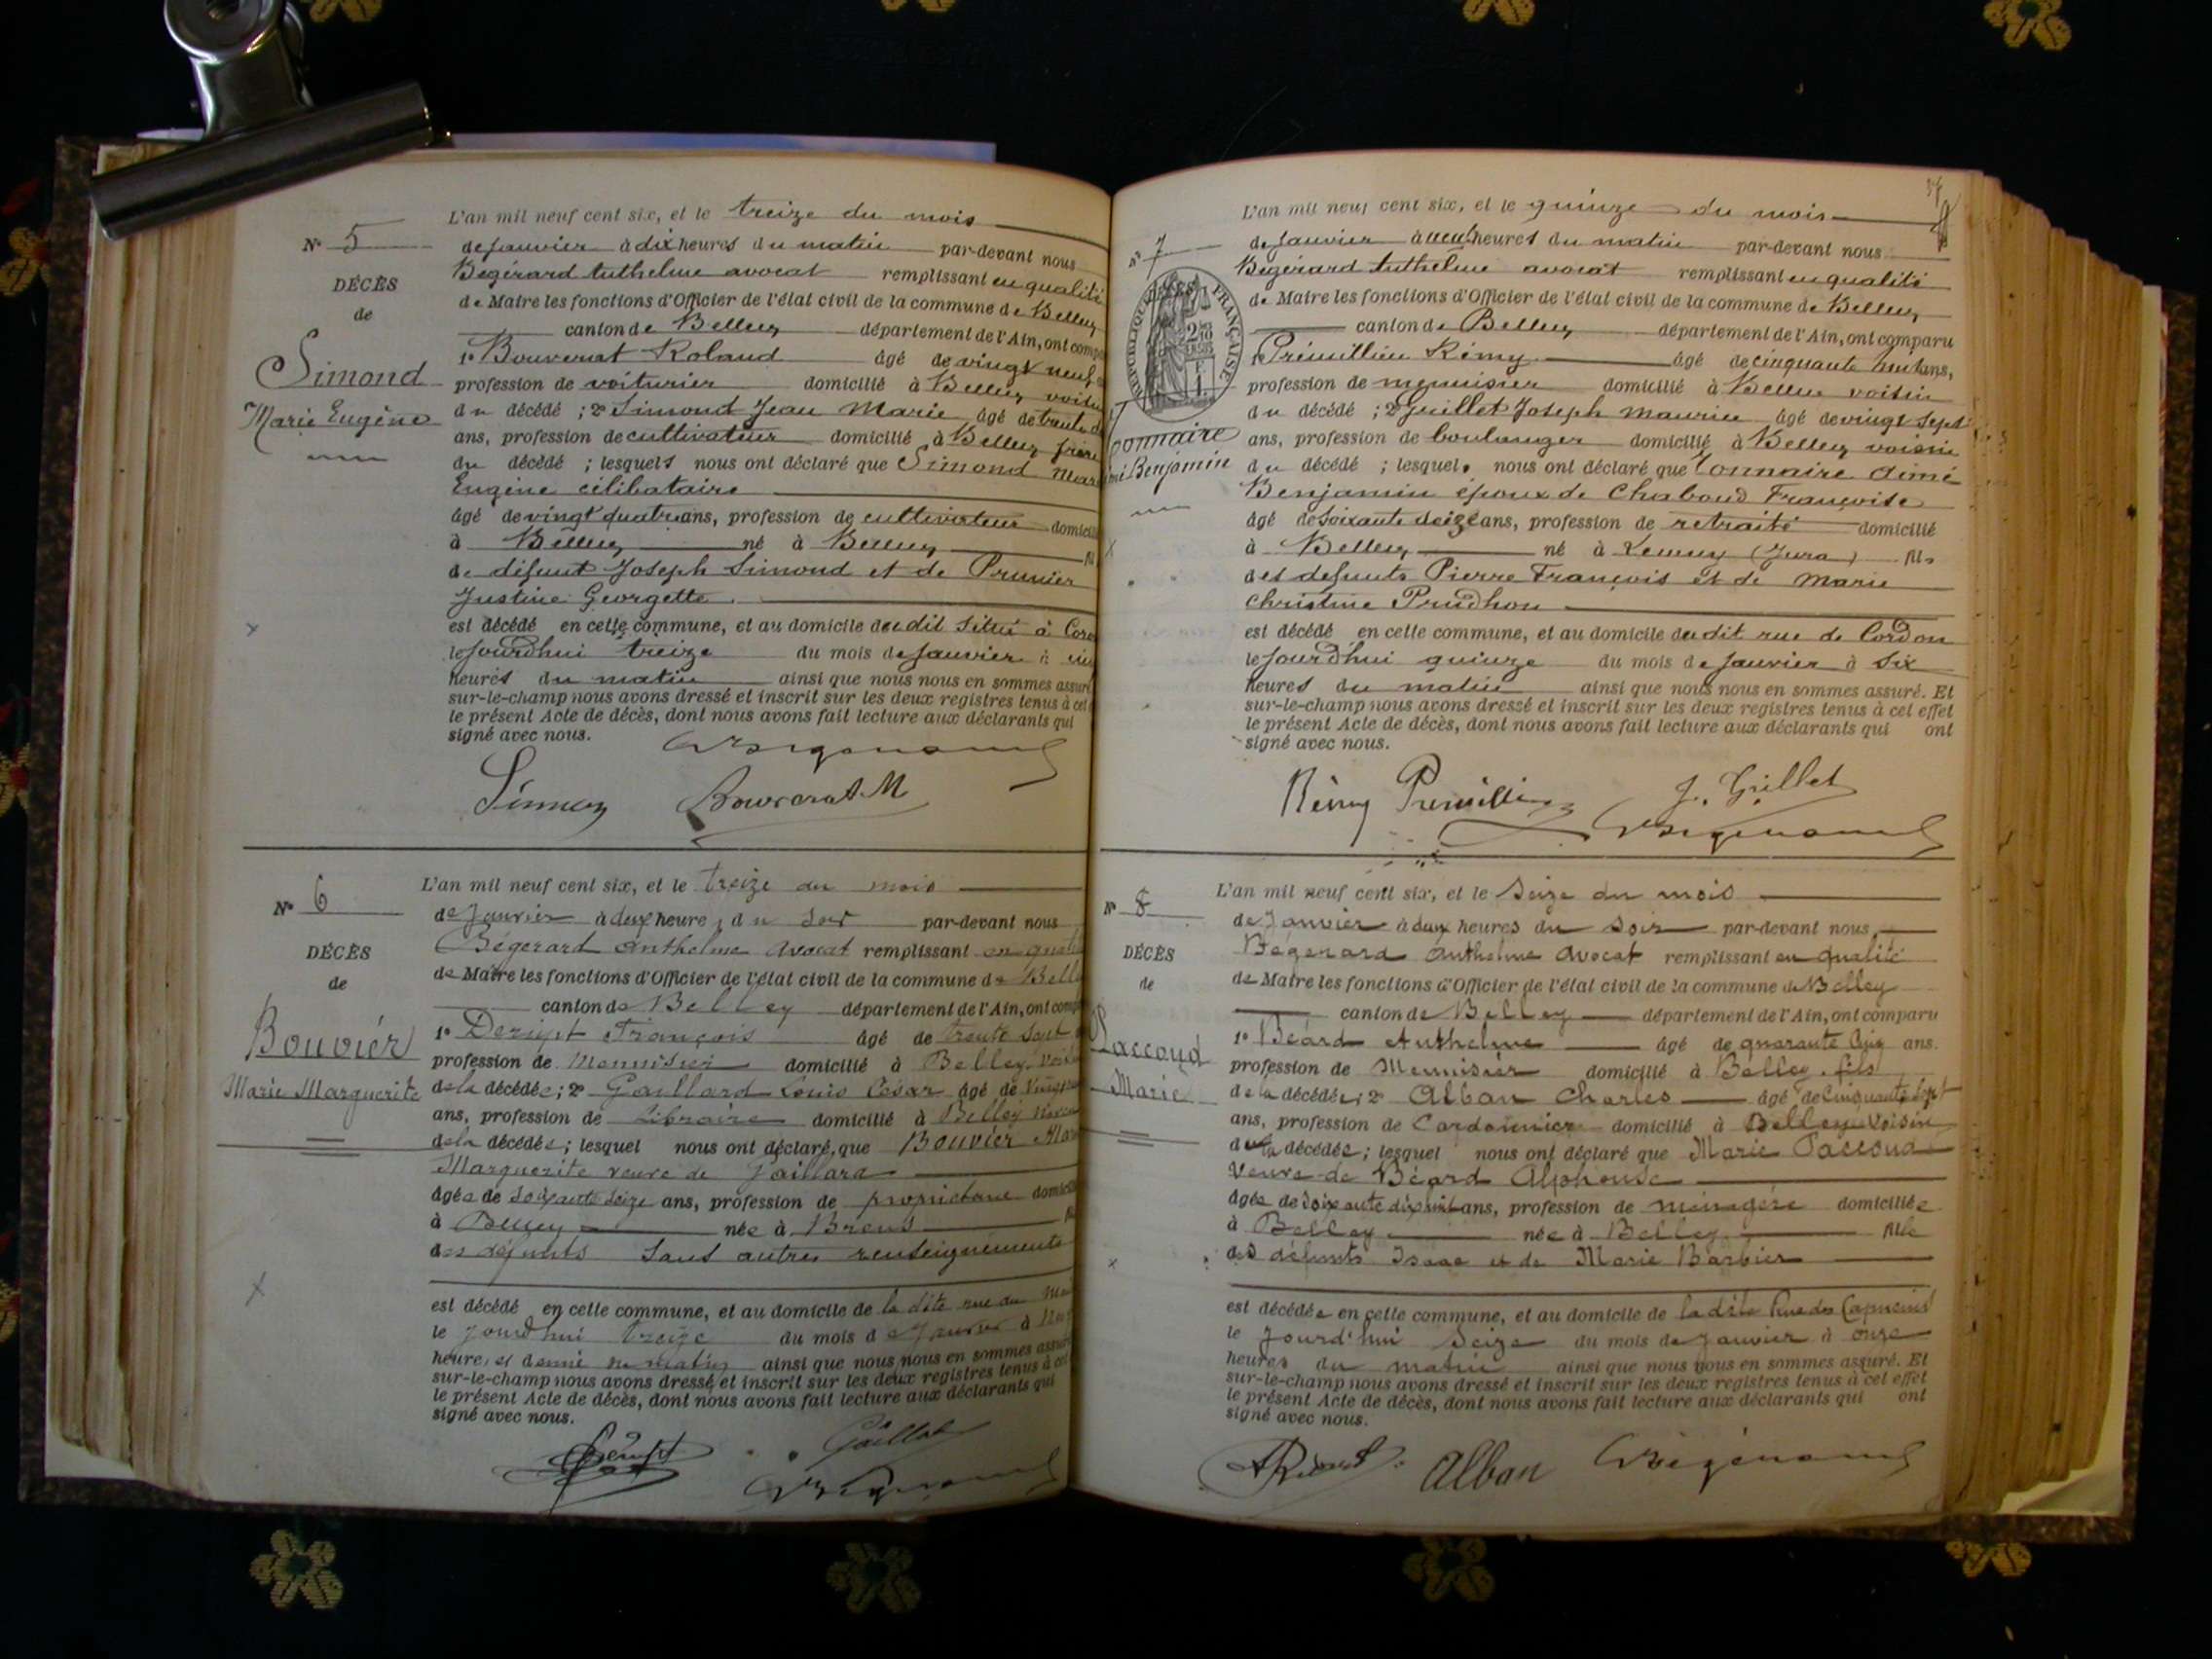 N° 5
DÉCÈS
de
Simond
Marie Eugène
L'an mil neuf cent six, et le treize du mois
de Janvier à dix heures du matin par-devant nous
Bégérard Anthelme avocat remplissant en qualité
de Maire les fonctions d'Officier de l'état civil de la commune de Belley
canton de Belley département de l'Ain, ont comp
1° Bouverat Roland âgé de vingt neuf
profession de voiturier domicilié à Belley voisin
du décédé ; 2° Simond Jean Marie âgé de trente
ans, profession de cultivateur domicilié à Belley frère
du décédé ; lesquels nous ont déclaré que Simond Mari
Eugène célibataire
âgé de vingt quatre ans, profession de cultivateur domicili
à Belley né à Belley fil
de défunt Joseph Simond et de Prunier
Justine Georgette
est décédé en cette commune, et au domicile du dit situé à Cor
le Jourdhui treize du mois de Janvier à
heures du matin ainsi que nous nous en sommes assuré
sur-le-champ nous avons dressé et inscrit sur les deux registres tenus à cet
le présent Acte de décès, dont nous avons fait lecture aux déclarants qui
signé avec nous.
Simon Bouverat M
N° 6
DÉCÈS
de
Bouvier
Marie Marguerite
L'an mil neuf cent six, et le treize du mois
de Janvier à deux heures du soir par-devant nous
Bégerard Anthelme Avocat remplissant en qualité
de Maire les fonctions d'Officier de l'état civil de la commune de Bell
canton de Belley département de l'Ain, ont comp
1° François âgé de trente sept
profession de Menuisier domicilié à Belley voisin
de la décédée ; 2° Gaillard Louis César âgé de
ans, profession de Libraire domicilié à Belley
de la décédée ; lesquel nous ont déclaré que Bouvier Mar
Marguerite veuve de Gaillard
âgée de soixante seize ans, profession de propriétaire domicili
à Belley née à Brens
des défunts sans autres renseignements
est décédé en cette commune, et au domicile de la dite rue du
le jourdhui treize du mois de Janvier à
heures et demie du matin ainsi que nous nous en sommes assuré
sur-le-champ nous avons dressé et inscrit sur les deux registres tenus à cet
le présent Acte de décès, dont nous avons fait lecture aux déclarants qui
signé avec nous.
Gaillard
N° 7
RÉPUBLIQUE FRANÇAISE
Tonnaire
mé Benjamin
L'an mil neuf cent six, et le quinze du mois
de Janvier à neuf heures du matin par-devant nous
Bégérard Anthelme avocat remplissant en qualité
de Maire les fonctions d'Officier de l'état civil de la commune de Belley
canton de Belley département de l'Ain, ont comparu
1° Prémillieu Rémy âgé de cinquante huit ans,
profession de menuisier domicilié à Belley voisin
du décédé ; 2° Guillet Joseph Maurice âgé de vingt sept
ans, profession de boulanger domicilié à Belley voisin
du décédé ; lesquels nous ont déclaré que Tonnaire Aimé
Benjamin époux de Chaboud Françoise
âgé de soixante seize ans, profession de retraité domicilié
à Belley né à Lemuy (Jura) fils
des défunts Pierre François et de Marie
Christine Prudhon
est décédé en cette commune, et au domicile du dit rue de Cordon
le Jourdhui quinze du mois de Janvier à six
heures du matin ainsi que nous nous en sommes assuré. Et
sur-le-champ nous avons dressé et inscrit sur les deux registres tenus à cet effet
le présent Acte de décès, dont nous avons fait lecture aux déclarants qui ont
signé avec nous.
Rémy Premilli J. Grillet
N° 8
DÉCÈS
de
Paccoud
Marie
L'an mil neuf cent six, et le seize du mois
de Janvier à deux heures du soir par-devant nous
Bégerard Anthelme Avocat remplissant en qualité
de Maire les fonctions d'Officier de l'état civil de la commune de Belley
canton de Belley département de l'Ain, ont comparu
1° Béard Anthelme âgé de quarante cinq ans.
profession de Menuisier domicilié à Belley fils
de la décédée ; 2° Alban Charles âgé de cinquante sept
ans, profession de Cordonnier domicilié à Belley voisin
de la décédée ; lesquel nous ont déclaré que Marie Paccoud
veuve de Béard Alphonse
âgée de soixante dix huit ans, profession de ménagère domiciliée
à Belley née à Belley fille
des défunts Isaac et de Marie Barbier
est décédée en cette commune, et au domicile de la dite Rue des Capucins
le Jourd'hui seize du mois de Janvier à onze
heures du matin ainsi que nous nous en sommes assuré. Et
sur-le-champ nous avons dressé et inscrit sur les deux registres tenus à cet effet
le présent Acte de décès, dont nous avons fait lecture aux déclarants qui ont
signé avec nous.
Alban